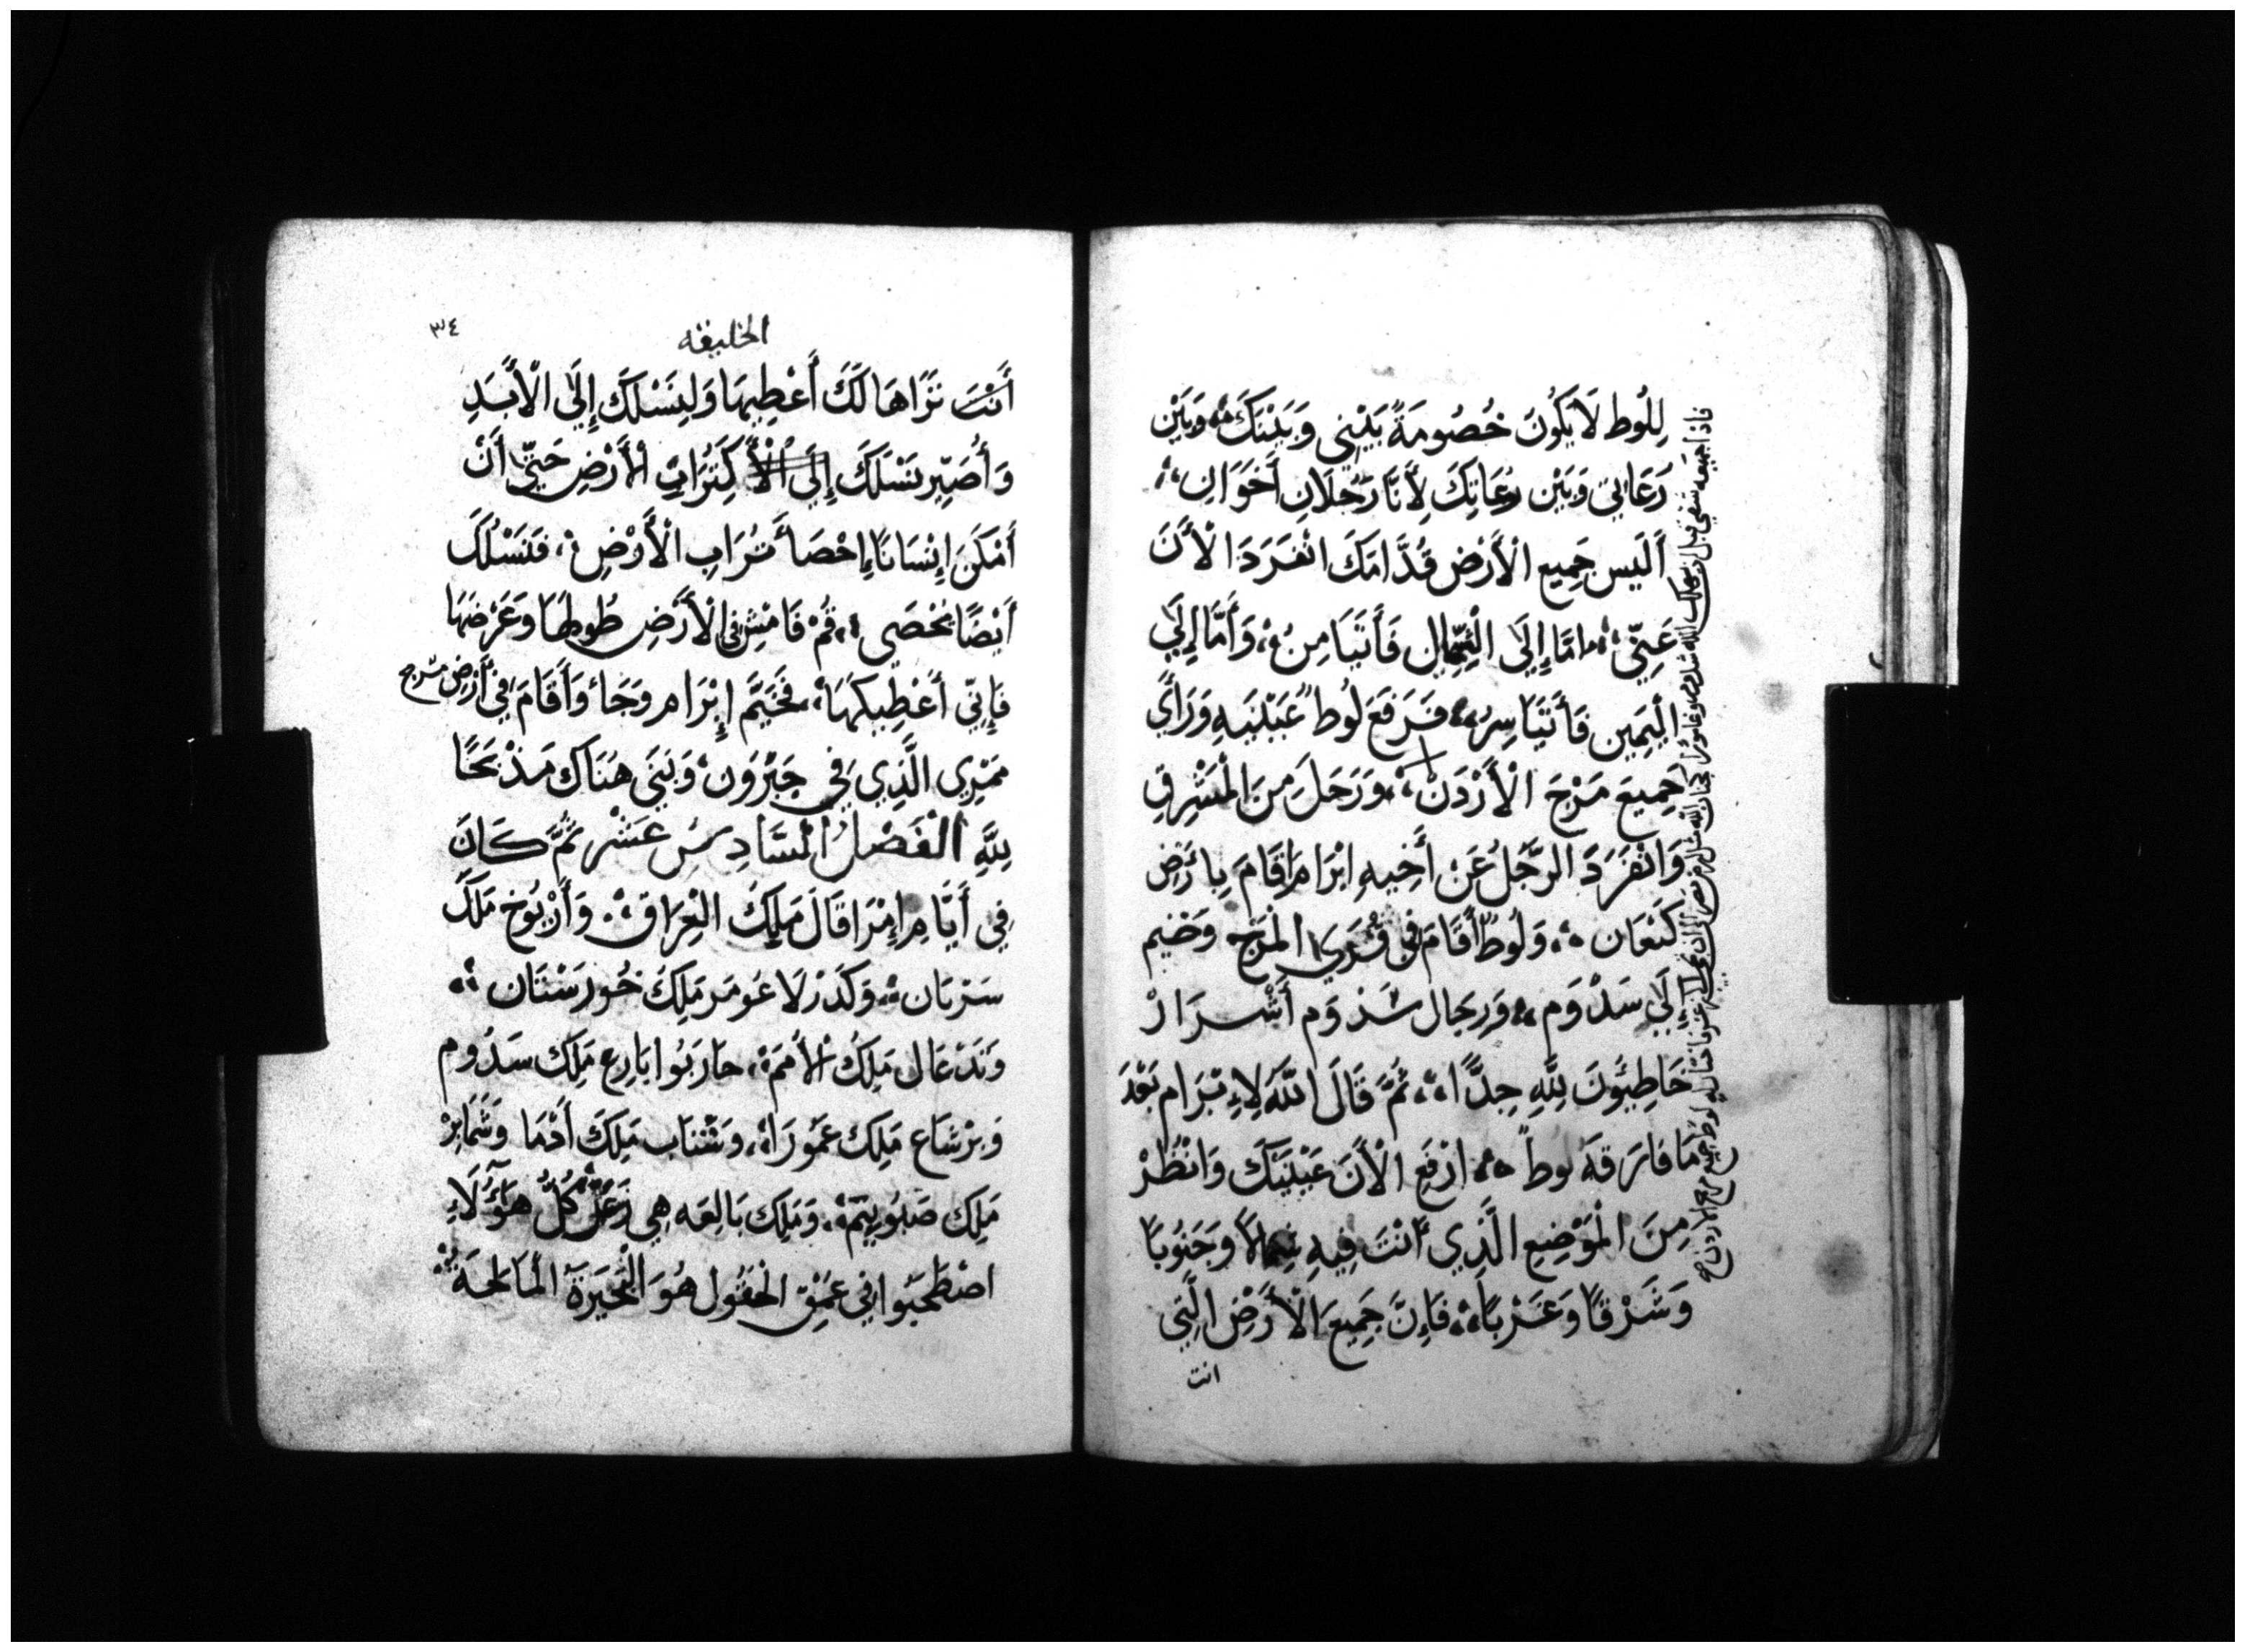 لِلُوط لَا يَكُونَ خُصُومَةً بَيْنِي وَبَيْنَكَ وَبَيْن
رُعَاتِي وَبَيْن رُعَاتِكَ لِأَنَّا رَجُلَانِ أَخَوَانِ
أَلَيس جَمِيع الْأَرْضِ قُدَّامَكَ انْفَرَدَ الْأَنَ
عَنِّي امَّا إِلَى الْشِّمَالِ فَأَتَيَامِنُ وَأَمَّا إِلَي
الْيَمِين فَأَتَيَاسِرُ فَرَفَعَ لُوط عَيْنَيهِ وَرَأَي
جَمِيعَ مَرْجَ الْأَرْدَنْ وَرَحَلَ مِنَ الْمَشْرِقِ
وَانْفَرَدَ الرَّجُلُ عَنْ أَخِيهِ ابْرَام اقَامَ بِارَضِ
كَنْعَان وَلُوطٌ أَقَامَ فِي قُرَي الْمَرْجِ وَخَيم
إلَي سَدْوَم وَرِجَال سَدْوَم أَشْرَارْ
خَاطِيُونَ لِلَّهِ جِدًّا ثُمَّ قَالَ اللَّهَ لِإِبْرَام بَعْدَ
مَا فَارَقَه لوطً ارْفَعِ الْأَنَ عَيْنَيْكَ وَانْظُرْ
مِنَ الْمَوْضِعِ الَّذِي أَنْتَ فِيهِ شِمالًا وَجَنُوبًا
وَشَرْقًا وَغَرْبًا فَإِنَّ جَمِيعَ الْأَرْضِ الَّتِي
انت
فاذا جميعه سقي قبل ان يهلك الله سدوم وغامورا كجنان الله
لوط جميع مرج الاردن
الخليقه
٣٤
أَنْتَ تَرَاهَا لَكَ أَعْطِيهَا وَلِنَسْلَكَ إِلَى الْأَبَدِ
وَأُصَيِّر نَسْلَكَ إِلَى الْأَ كَتُرَابِ الْأَرْضِ حَتَّي أَنْ
أَمْكَنَ إِنْسَانًا إِحْصَأ تُرَابِ الْأَرْضِ فَنَسْلُكَ
أَيْضًا يُحْصَي قُمْ فَامْشِ فِي الْأَرْضِ طُولِهَا وَعَرْضَهَا
فَإِنِّي أَعْطِيكَهَا فَخَيَّمَ إِبْرَام وَجَأ وَأَقَامَ فِي أَرْضِ مَرج
مَمْرِي الَّذِي فِي حَبْرُونْ وَبَنَي هُنَاكَ مَذْبَحًا
لِلَّهِ الْفَصْلُ الْسَّادِسُ عَشَر ثُمَّ كَانَ
فِي أَيَّامِ إِمْرَافَال مَلِكَ الْعِرَاق وَأَرْيُوخ مَلِكَ
سَرْيَان وَكَدَرْلَاعَومَر مَلِكَ خُورَسْتَان
وَتَدْعَال مَلِكُ الْأُمَمْ حَارَبُوا بَارِع مَلِكَ سَدُوم
وَبِرْشَاع مَلِكَ عَمُورَاهْ وَشَنَاب مَلِكَ أَدْمَا وَشَمَابِرْ
مَلِكَ صَبُويِيمْ وَمَلِكَ بَالِعَه هِي زُغَرْ كُلُّ هَؤُلَاءِ
اصْطَحَبُوا فِي عُمْقِ الْحَقُول هُوَ الْبُحَيْرَةَ الْمَالِحَةُ